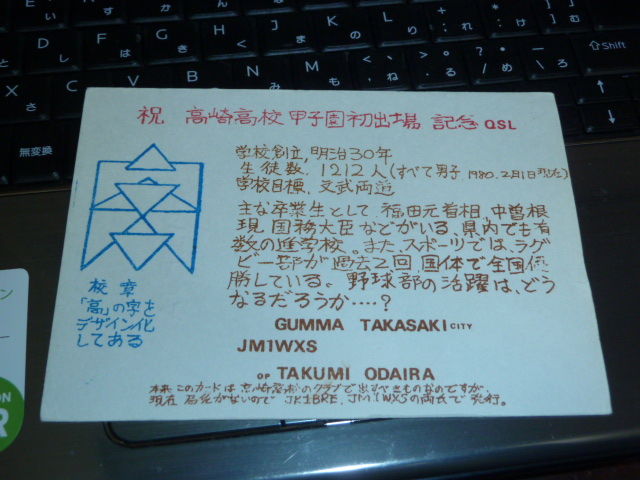 祝 高崎高校 甲子園初出場 記念 QSL
学校創立, 明治30年
生徒数. 1212人(すべて男子 1980.2月1日現在)
学校目標. 文武両道
主な卒業生として 福田元首相, 中曽根
現 国務大臣などがいる、県内でも有
数の進学校。また、スポーツでは、ラグ
ビー部が過去2回 国体で全国優
勝している。野球部の活躍は、どう
なるだろうか‥‥?
校章
「高」の字を
デザイン化
してある
GUMMA TAKASAKI CITY
JM1WXS
OP TAKUMI ODAIRA
本来このカードは高崎高校のクラブで出すべきものなのですが,
現在 局免がないので JK1BRE, JM1WXSの両氏で発行。
無変換
Shift
D
F
G
H
J
K
L
X
C
V
B
N
M